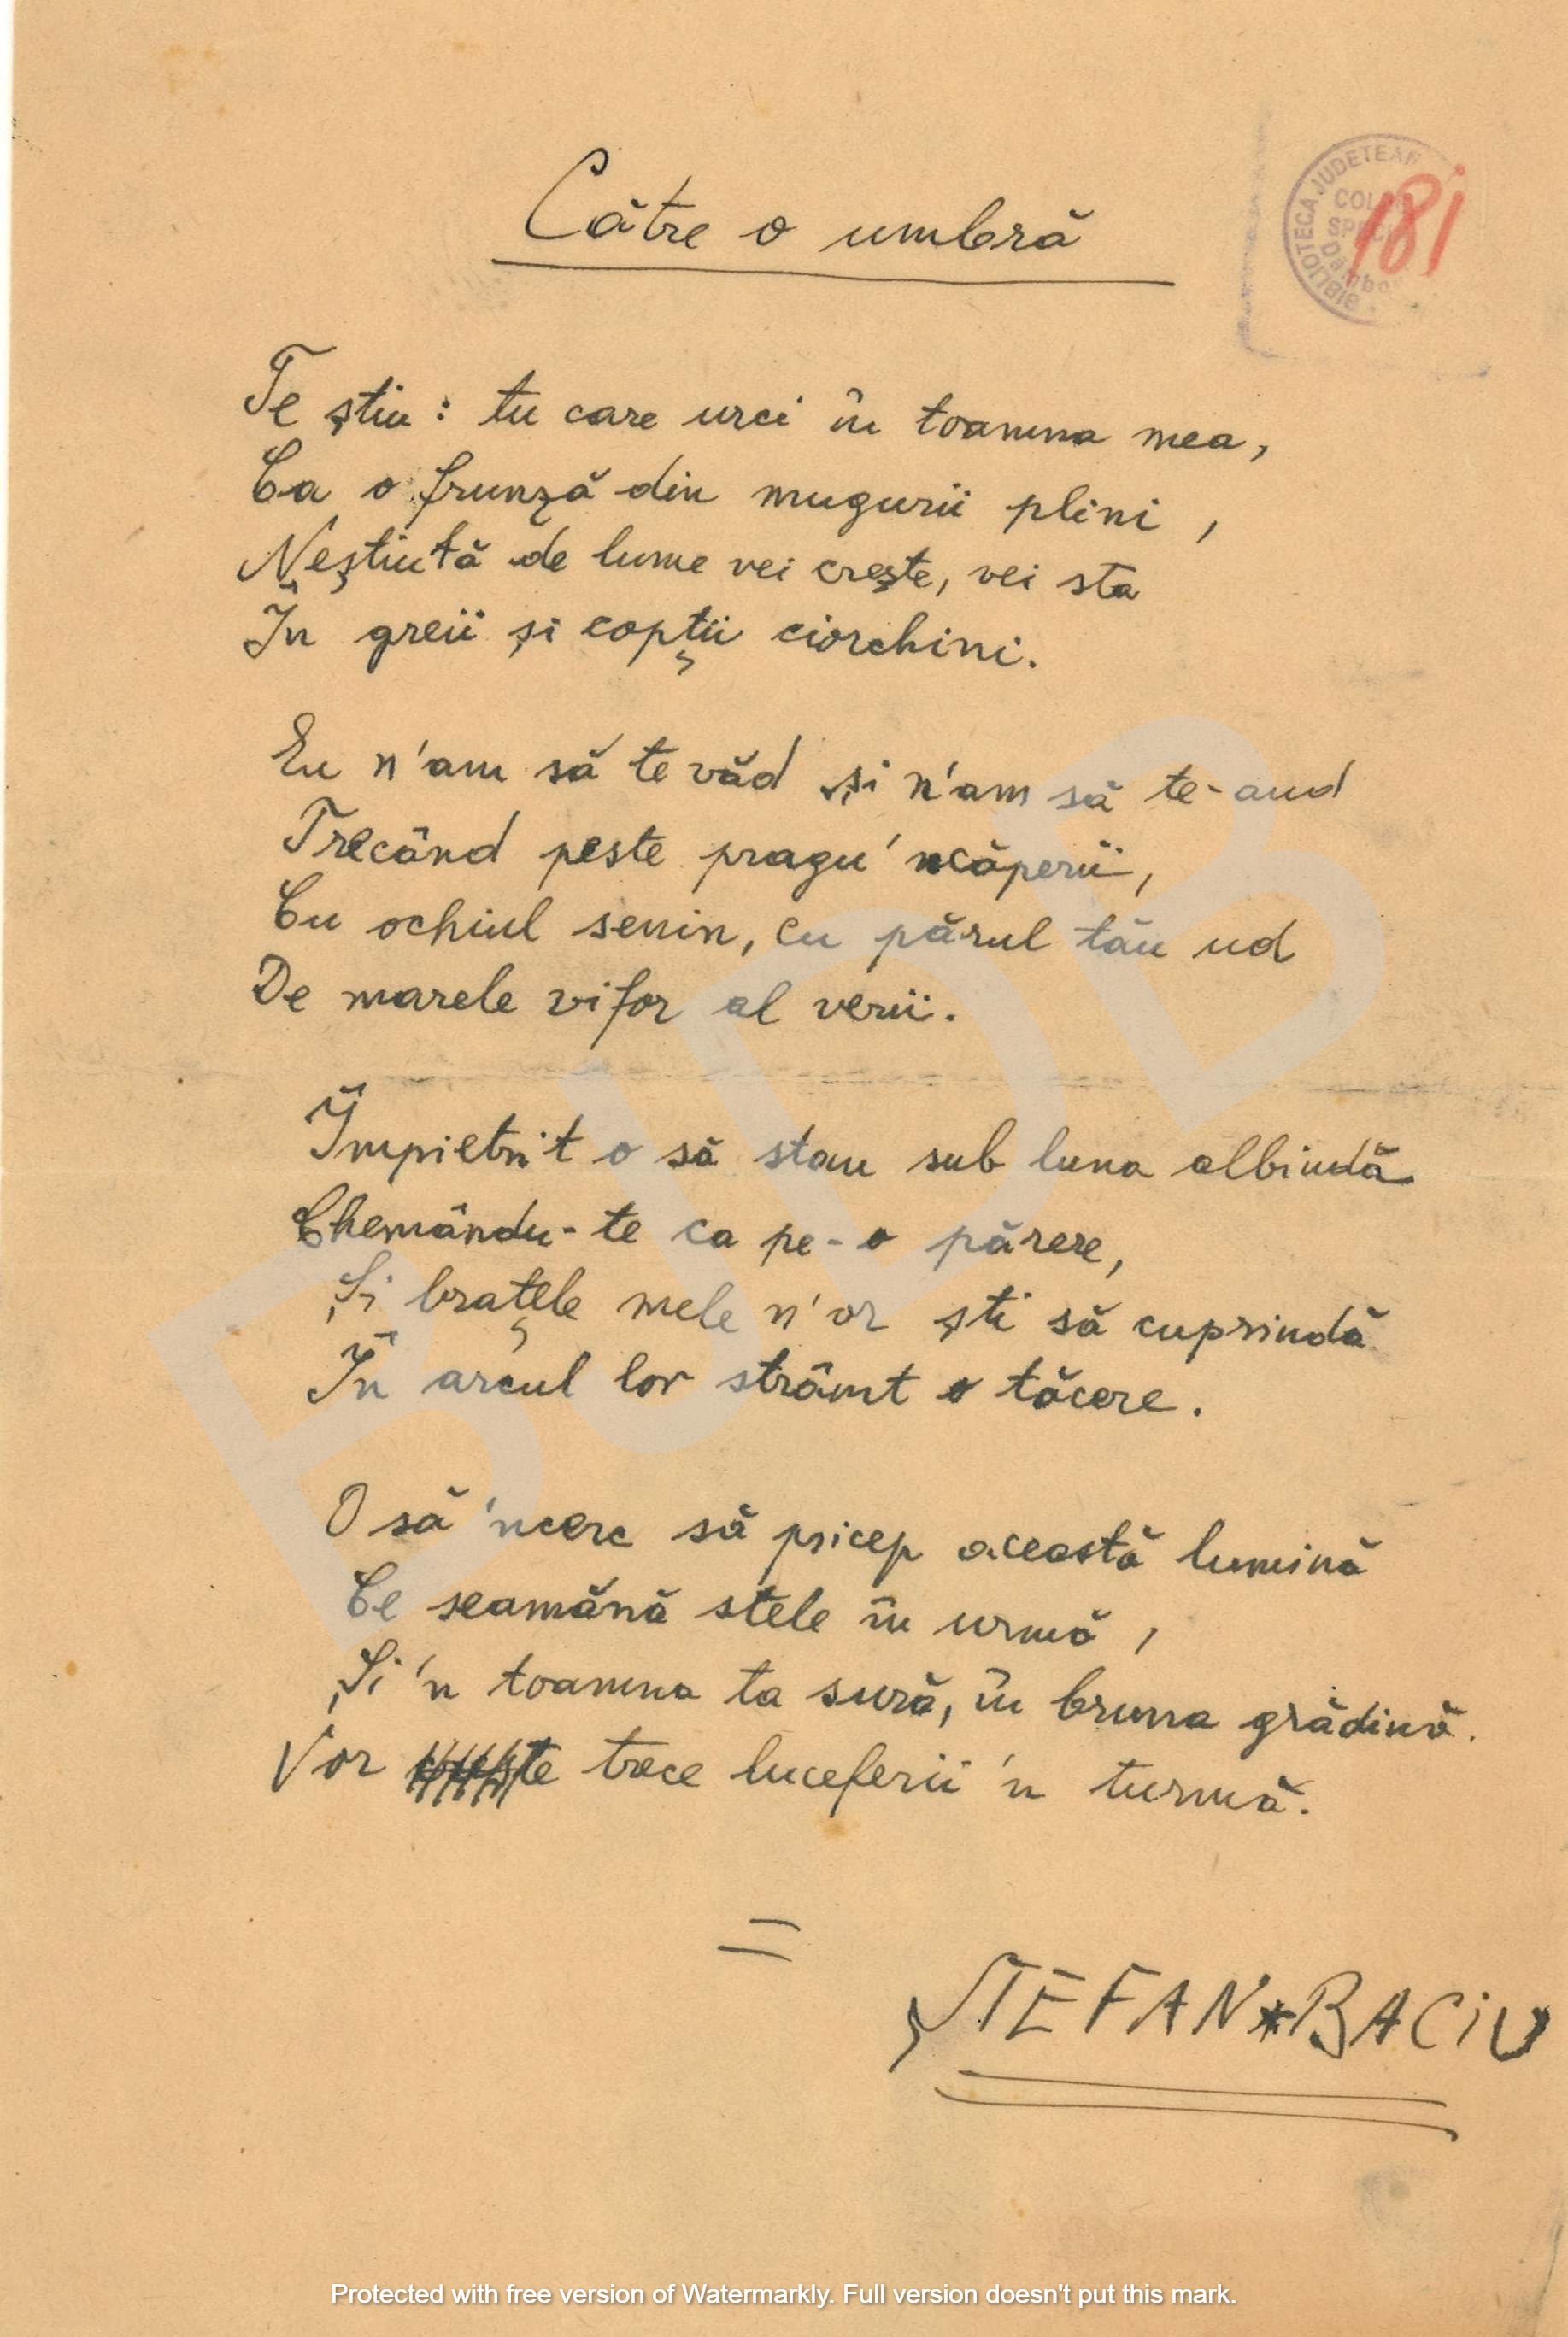 Către o umbră
BIBLIOTECA JUDEȚEAN
COL
181
Te știu: tu care urci în toamna mea,
Ca o frunză din mugurii plini,
Neștiută de lume vei crește, vei sta
În greii și copții ciorchini.
Eu n'am să te văd și n'am să te-aud
Trecând peste pragu' ncăperii,
Cu ochiul senin, cu părul tău ud
De marele vifor al verii.
Împietrit o să stau sub luna albindă
Chemându-te ca pe-o părere,
Și brațele mele n'or ști să cuprindă
În arcul lor strâmt o tăcere.
O să 'ncerc să pricep această lumină
Ce seamănă stele în urmă,
Și 'n toamna ta sură, în bruma grădină.
Vor trece luceferii 'n turmă.
=
ȘTEFAN*BACiU
BJDB
Protected with free version of Watermarkly. Full version doesn't put this mark.